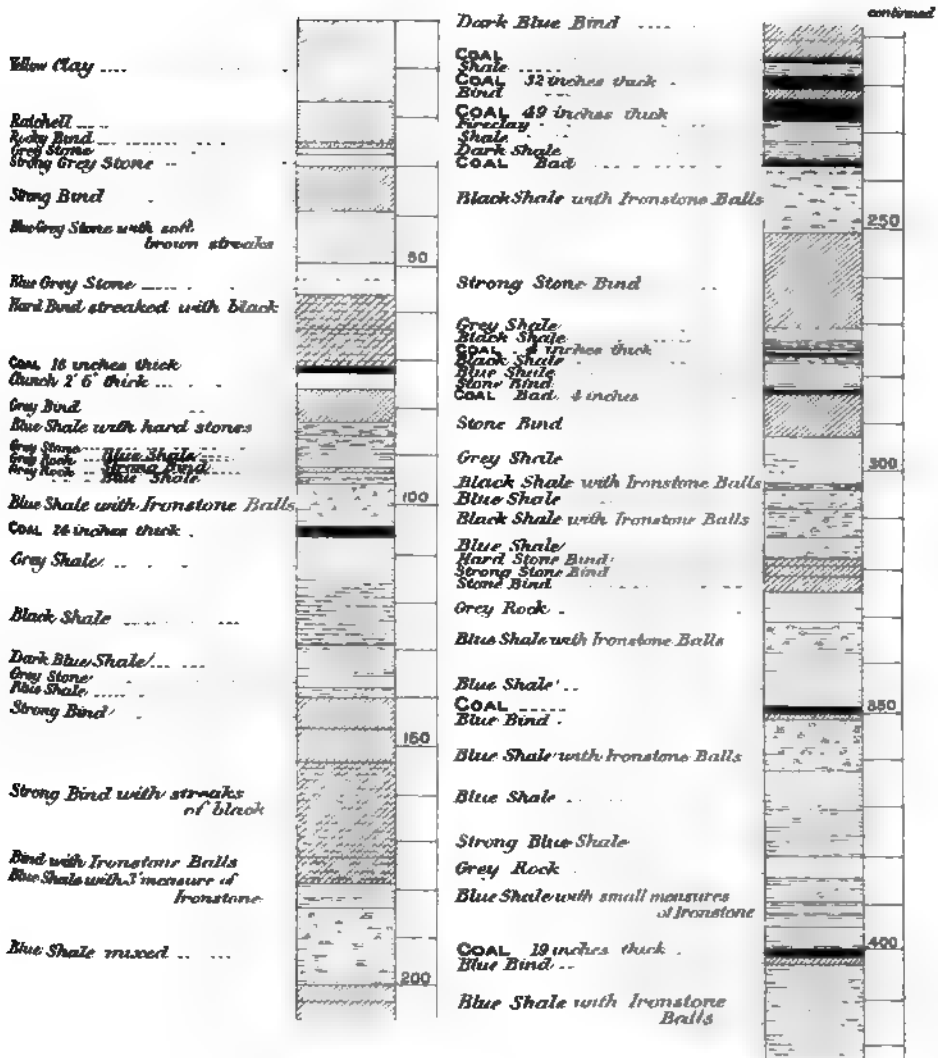 Yellow Clay
Ratchell
Rocky Bind
Grey Stone
Strong Grey Stone
Strong Bind
Blue Grey Stone with soft
brown streaks
50
Blue Grey Stone
Hard Bind streaked with black
COAL 16 inches thick
Clunch 2' 6" thick
Grey Bind
Blue Shale with hard stones
Grey Stone
Blue Shale
Grey Rock
Strong Bind
Grey Rock
Blue Shale
Blue Shale with Ironstone Balls
100
COAL 24 inches thick
Grey Shale
Black Shale
Dark Blue Shale
Grey Stone
Blue Shale
Strong Bind
150
Strong Bind with streaks
of black
Bind with Ironstone Balls
Blue Shale with 3" measure of
Ironstone
Blue Shale mixed
200
continued
Dark Blue Bind
COAL
Shale
COAL 32 inches thick
Bind
COAL 49 inches thick
Fireclay
Shale
Dark Shale
COAL Bad
Black Shale with Ironstone Balls
250
Strong Stone Bind
Grey Shale
Black Shale
COAL 4 inches thick
Black Shale
Blue Shale
Stone Bind
COAL Bad 4 inches
Stone Bind
Grey Shale
300
Black Shale with Ironstone Balls
Blue Shale
Black Shale with Ironstone Balls
Blue Shale
Hard Stone Bind
Strong Stone Bind
Stone Bind
Grey Rock
Blue Shale with Ironstone Balls
Blue Shale
COAL
350
Blue Bind
Blue Shale with Ironstone Balls
Blue Shale
Strong Blue Shale
Grey Rock
Blue Shale with small measures
of Ironstone
COAL 19 inches thick
400
Blue Bind
Blue Shale with Ironstone
Balls